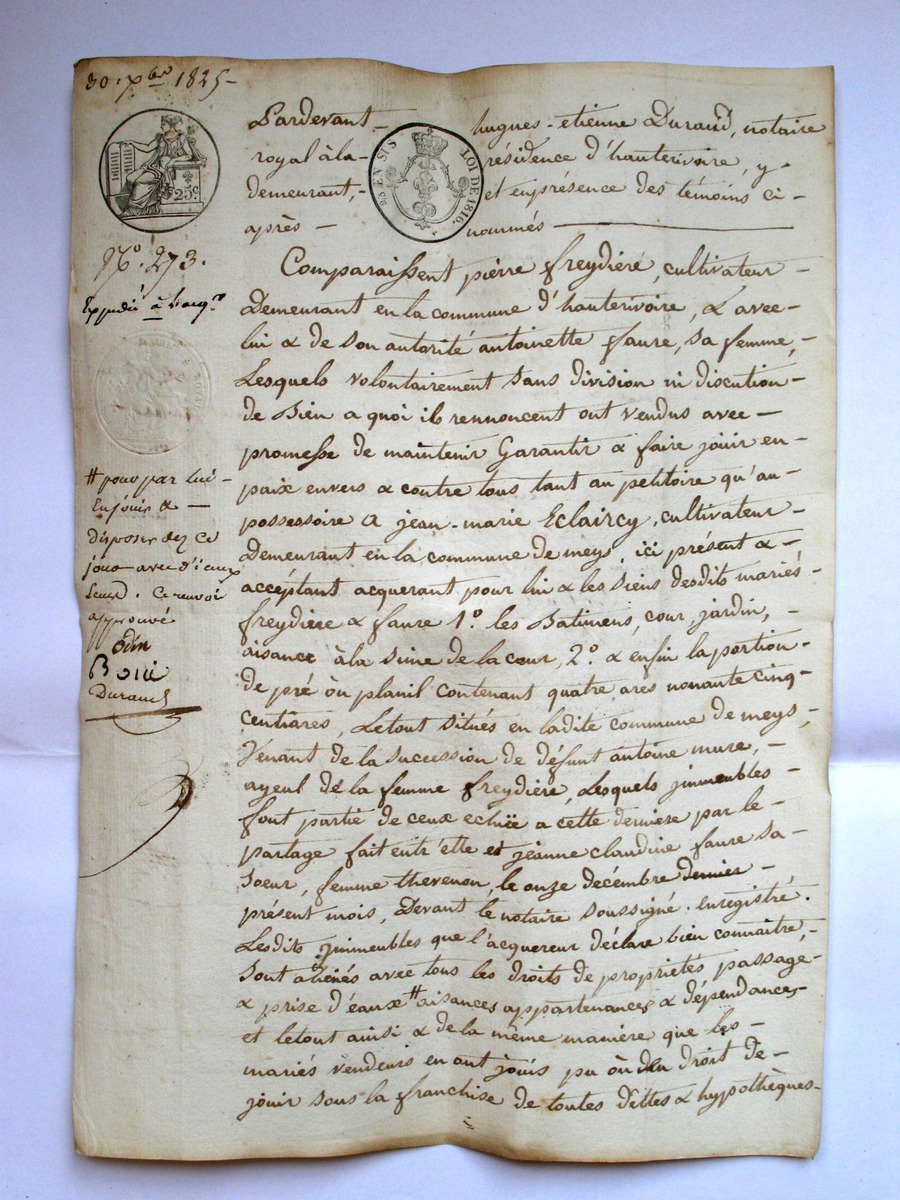 30. xbre 1825
25 c
25 EN SUS
LOI DE 1816.
No. 273.
Expédié à l'acqr
Pardevant hugues-etienne Durand, notaire
royal à la résidence d'hauterivoire, y
demeurant, et en présence des témoins ci-
après nommés
Comparaissent pierre freydière, cultivateur
Demeurant en la commune d'hauterivoire, & avec
lui & de son autorité antoinette faure, sa femme,
Lesquels volontairement sans division ni discution
de Bien a quoi ils rennoncent ont vendus avec
promesse de maintenir Garantir & faire jouir en
paix envers & contre tous tant au petitoire qu'au
possessoire a jean-marie Eclaircy, cultivateur
demeurant en la commune de meys, ici présent &
acceptant acquerant pour lui & les siens desdits mariés
freydière & faure 1o. les Batimens, cour, jardin,
aisance à la sime de la cour, 2o. & enfin la portion
de pré ou planil contenant quatre ares nonante cinq
centiares, Le tout situés en ladite commune de meys,
Venant de la sucession de défunt antoine mure,
ayeul de la femme freydière, Lesquels jmmeubles
font partie de ceux echue a cette derniere par le
partage fait entr'elle et jeanne claudine faure sa
soeur, femme thevenon, le onze décembre dernier
présent mois, Devant le notaire soussigné. enregistré.
Lesdits jmmeubles que l'acquereur déclare bien connaitre,
sont aliénés avec tous les droits de propriétés passage
& prise d'eaux # aisances appartenances & dépendances
et le tout ainsi & de la même manière que les
mariés vendeurs en ont jouis pu ou du droit de
jouir sous la franchise de toutes dettes & hypothèques
# pour par lui
En jouir &
disposer dez ce
jour avec
Ce renvoi
approuvé
Odin
Durand